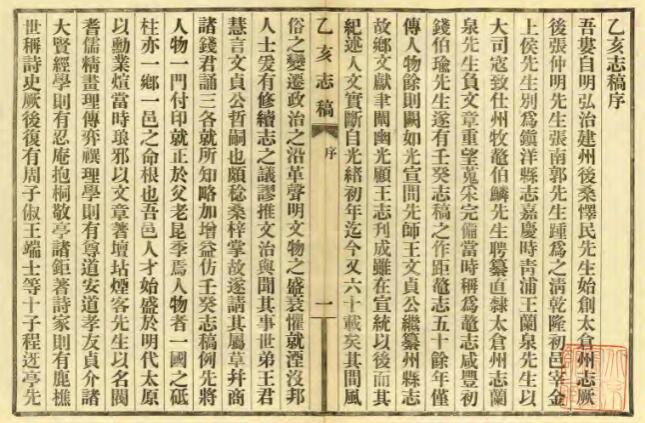 乙亥志稿序
吾婁自明弘治建州後桑懌民先生始創太倉州志厥
後張仲明先生張南郭先生踵爲之淸乾隆初邑宰金
上侯先生別爲鎭洋縣志嘉慶時靑浦王蘭泉先生以
大司寇致仕州牧鼇伯麟先生聘纂直隸太倉州志蘭
泉先生負文章重望蒐采完備當時稱爲鼇志咸豐初
錢伯瑜先生遂有壬癸志稿之作距鼇志五十餘年僅
傳人物餘則闕如光宣間先師王文貞公繼纂州縣志
故鄉文獻聿闡幽光顧王志刋成雖在宣統以後而其
紀述人文實斷自光緒初年迄今又六十載矣其間風
乙亥志稿
序
一
俗之變遷政治之沿革聲明文物之盛衰懼就湮沒邦
人士爰有修續志之議謬推文治與聞其事世弟王君
慧言文貞公哲嗣也頗稔桑梓掌故遂請其屬草幷商
諸錢君誦三各就所知略加增益仿壬癸志稿例先將
人物一門付印就正於父老昆季焉人物者一國之砥
柱亦一鄉一邑之命根也吾邑人才始盛於明代太原
以勳業煊當時琅邪以文章著壇坫煙客先生以名閥
耆儒精畫理傳弈禩理學則有尊道安道孝友貞介諸
大賢經學則有忍庵抱桐敬亭諸鉅著詩家則有鹿樵
世稱詩史厥後復有周子俶王端士等十子程迓亭先